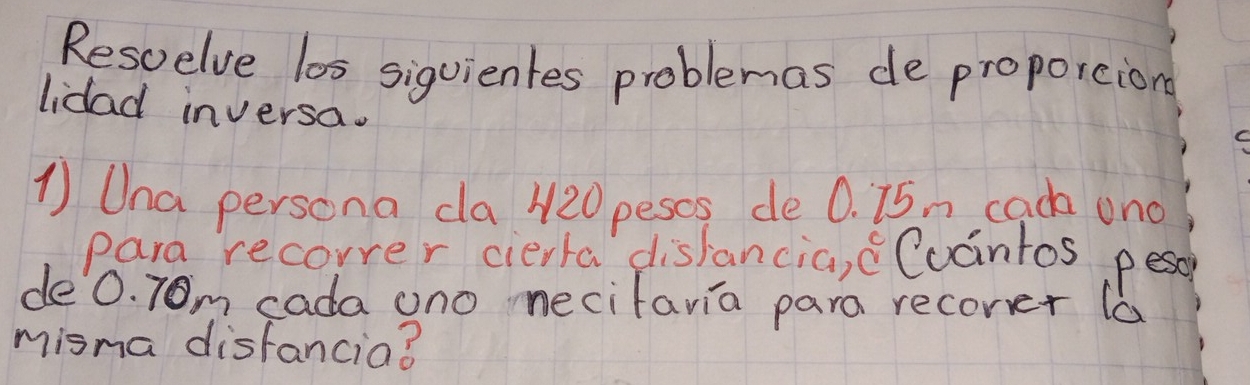 Resuelve los siguientes problemas de proporciona
lidad inversa.
1) Una persona da 420 pesos de 0.75m cada uno
para recorrer cierta distancia, ¿Cuántos pesos
de 0.70m cada uno necitaría para recorrer la
misma distancia?